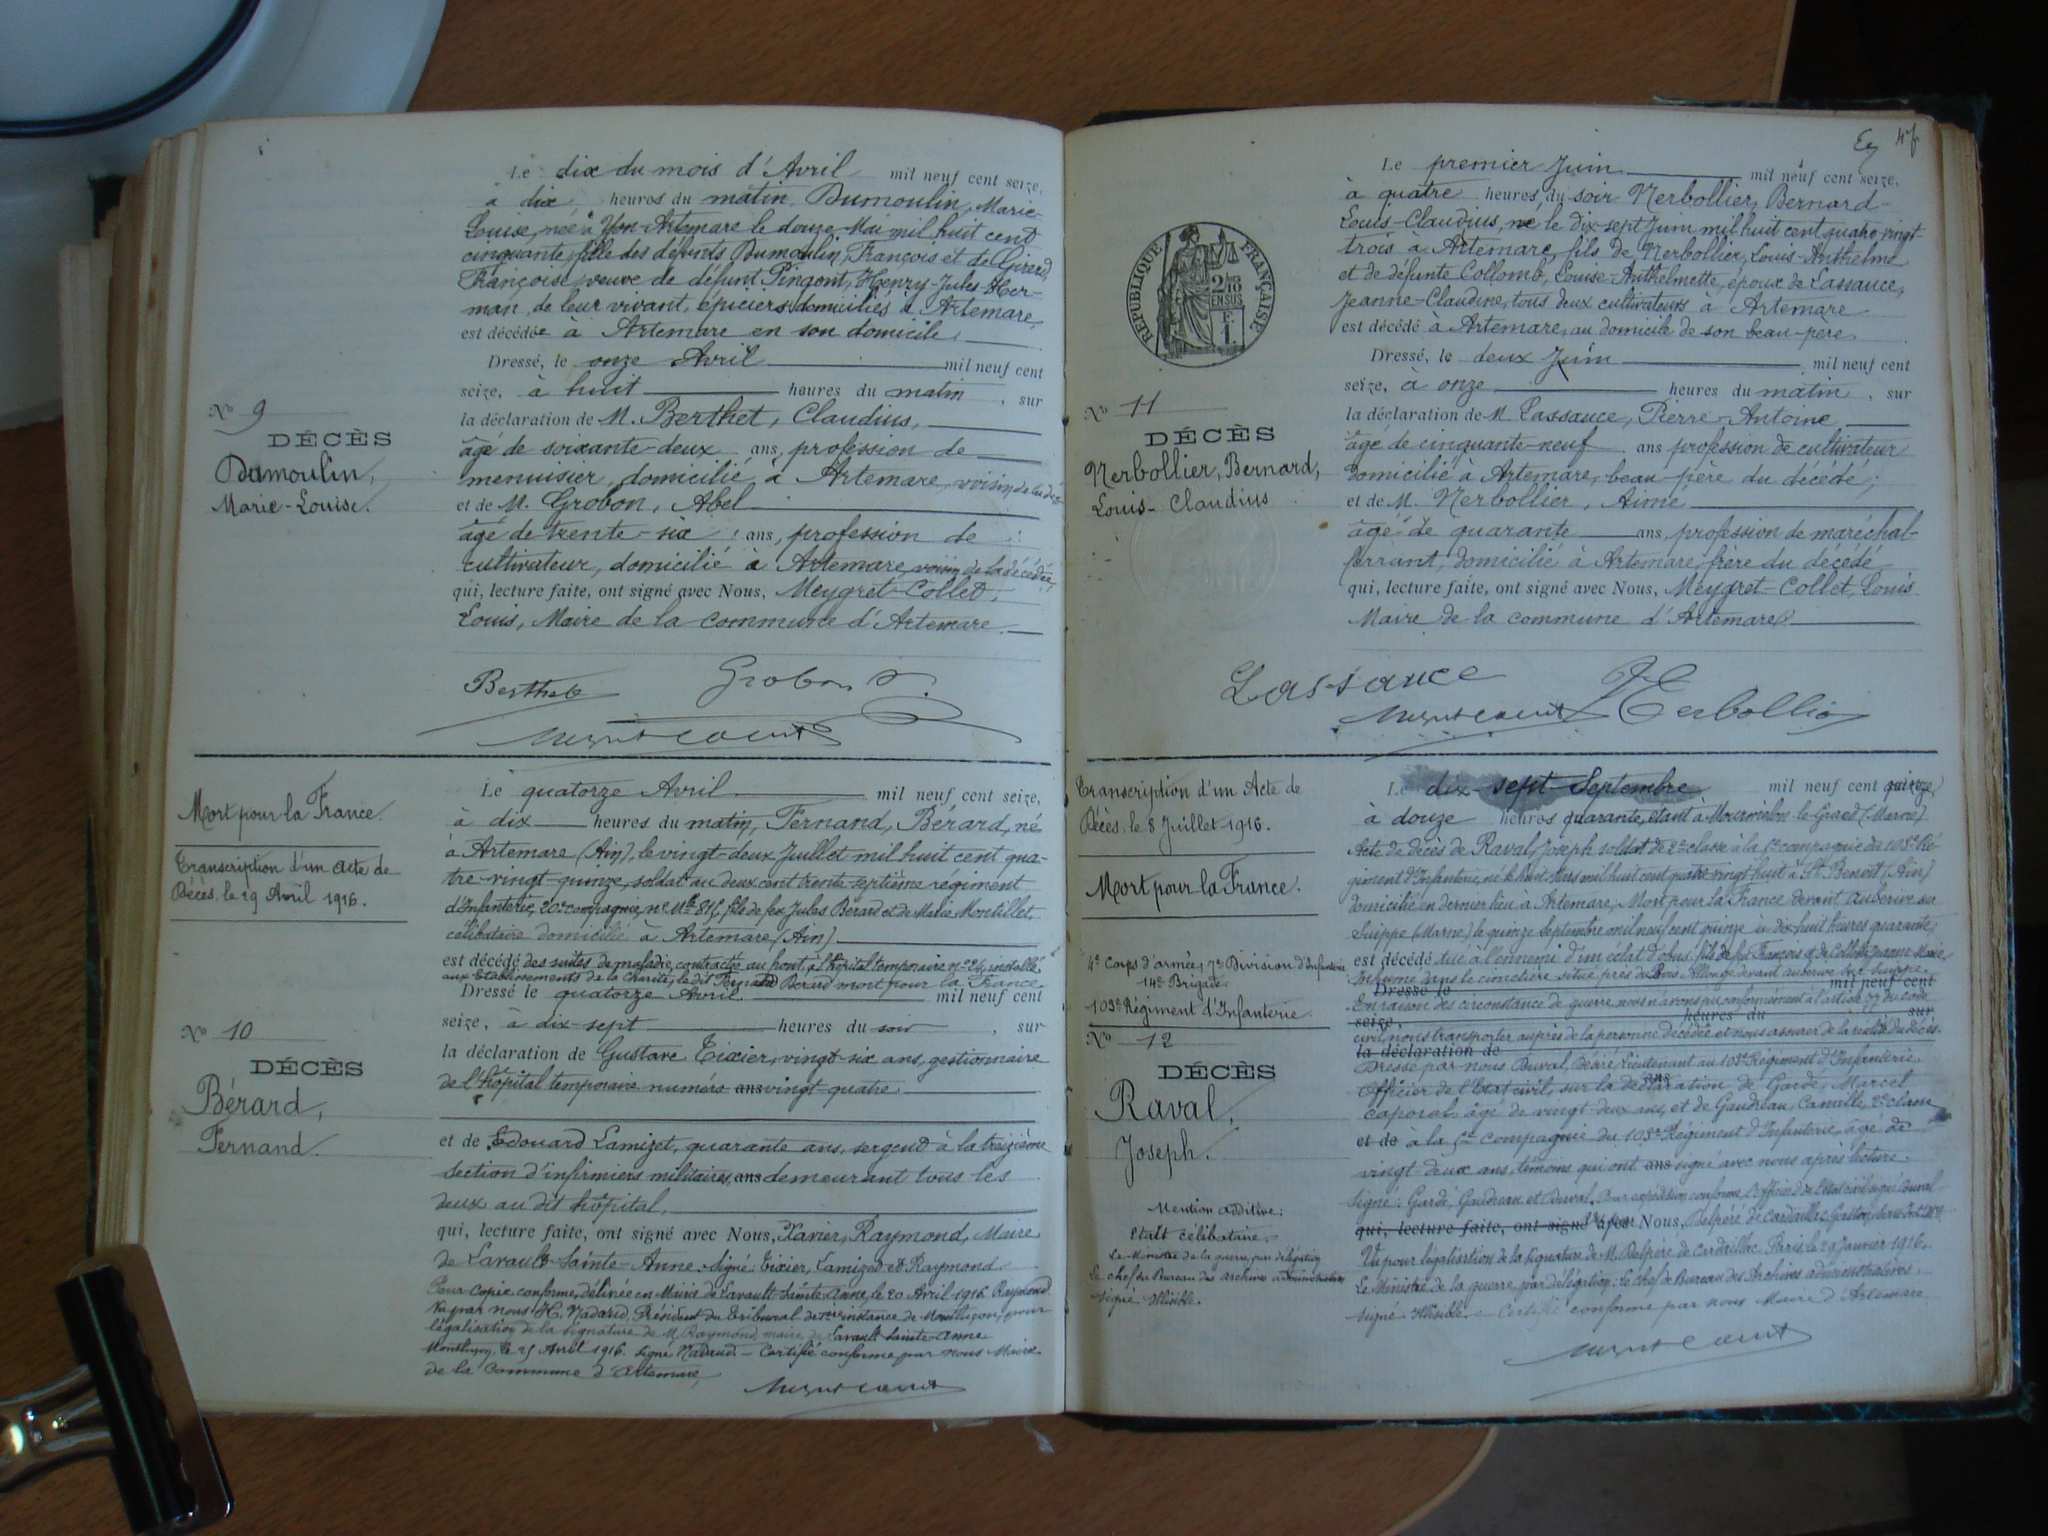 Le dix du mois d'Avril mil neuf cent seize,
à dix heures du matin Dumoulin, Marie-
Louise, née à Yon-Artemare le douze Mai mil huit cent
cinquante, fille des défunts Dumoulin, François et de Girerd,
Françoise, veuve de défunt Pingont, Henry-Jules-Her-
man, de leur vivant, épiciers domiciliés à Artemare,
est décédée à Artemare en son domicile.
Dressé, le onze Avril mil neuf cent
seize, à huit heures du matin, sur
la déclaration de M. Berthet, Claudius,
âgé de soixante-deux ans, profession de
menuisier, domicilié à Artemare, voisin de la
et de M. Grobon, Abel
âgé de trente-six ans, profession de
cultivateur, domicilié à Artemare, voisin de la décédée,
qui, lecture faite, ont signé avec Nous, Meygret-Collet,
Louis, Maire de la commune d'Artemare.
No 9
DÉCÈS
Dumoulin,
Marie-Louise.
Berthet Grobon
Mort pour la France.
Transcription d'un acte de
Décès le 29 Avril 1916.
No 10
DÉCÈS
Bérard,
Fernand.
Le quatorze Avril mil neuf cent seize,
à dix heures du matin, Fernand, Bérard, né
à Artemare (Ain), le vingt-deux Juillet mil huit cent qua-
tre-vingt-quinze, soldat au deux cent trente-septième régiment
d'Infanterie, 20e compagnie, no Mle 815, fils de feu Jules Bérard et de Maria Montillet,
célibataire domicilié à Artemare (Ain)
est décédé des suites de maladie contractée au front à l'hôpital temporaire no 24, installé
aux Etablissements de la Charité, le dit Fernand Bérard mort pour la France.
Dressé le quatorze Avril mil neuf cent
seize, à dix-sept heures du soir, sur
la déclaration de Gustave Tixier, vingt-six ans, gestionnaire
de l'hôpital temporaire numéro ans vingt-quatre.
et de Edouard Lamizet, quarante ans, sergent à la treizième
section d'infirmiers militaires, ans demeurant tous les
deux au dit hôpital,
qui, lecture faite, ont signé avec Nous, Xavier, Raymond, Maire
de Lavault-Sainte-Anne. Signé: Tixier, Lamizet et Raymond.
Pour copie conforme, délivrée en Mairie de Lavault-Sainte-Anne, le 20 Avril 1916 Raymond
Vu par nous H. Nadaud, Président du tribunal de 1ère instance de Montluçon, pour
légalisation de la signature de M. Raymond, maire de Lavault-Sainte-Anne
Montluçon, le 25 Avril 1916. Signé Nadaud - Certifié conforme par nous Maire
de la Commune d'Artemare,
RÉPUBLIQUE FRANÇAISE
2/10
EN SUS
No 11
DÉCÈS
Nerbollier, Bernard,
Louis-Claudius
Le premier Juin mil neuf cent seize,
à quatre heures du soir Nerbollier, Bernard-
Louis-Claudius, né le dix-sept Juin mil huit cent quatre-vingt-
trois à Artemare, fils de Nerbollier, Louis-Anthelme
et de défunte Collomb, Louise-Anthelmette, époux de Lassauce,
Jeanne-Claudine, tous deux cultivateurs à Artemare
est décédé à Artemare, au domicile de son beau-père
Dressé, le deux Juin mil neuf cent
seize, à onze heures du matin, sur
la déclaration de M Lassauce, Pierre-Antoine
âgé de cinquante-neuf ans profession de cultivateur
domicilié à Artemare, beau-père du décédé;
et de M. Nerbollier, Aimé
âgé de quarante ans profession de maréchal-
ferrant, domicilié à Artemare, frère du décédé
qui, lecture faite, ont signé avec Nous, Meygret-Collet, Louis
Maire de la commune d'Artemare.
Lassauce Nerbollier
Transcription d'un Acte de
Décès le 8 Juillet 1916.
Mort pour la France.
4e Corps d'armée, 7e Division d'Infanterie
14e Brigade
103e Régiment d'Infanterie
No 12
DÉCÈS
Raval,
Joseph.
Mention additive:
Etait célibataire.
Le Ministre de la guerre, par délégation
Le chef du Bureau des archives administratives
signé illisible.
Le dix-sept Septembre mil neuf cent quinze
à douze heures quarante, étant à Mourmelon-le-Grand (Marne)
Acte de décès de Raval, Joseph soldat de 2e classe à la compagnie du 103e Ré-
giment d'Infanterie, né le huit mil huit cent quatre-vingt-huit à St Benoit (Ain)
domicilié en dernier lieu à Artemare, Mort pour la France devant Auberive sur
Suippe (Marne) le quinze Septembre mil neuf cent quinze à dix-huit heures quarante,
est décédé tué à l'ennemi d'un éclat d'obus, fils de François et de
Inhumé dans le cimetière situé près du Bois Allongé devant Auberive sur Suippe.
Dressé le mil neuf cent
En raison des circonstances de guerre, nous n'avons pu conformément à l'article 77 du code
seize, heures du sur
civil, nous transporter auprès de la personne décédée et nous assurer de la réalité du décès.
la déclaration de
Dressé par nous Duval, Lieutenant au 103e Régiment d'Infanterie
Officier de l'Etat civil, sur la déclaration de Gardé, Marcel
caporal, âgé de vingt-deux ans, et de Gaudreau, Camille, 2e classe
et de à la 5e Compagnie du 103e Régiment d'Infanterie, âgé de
vingt-deux ans, témoins qui ont ans signé avec nous après lecture.
Signé: Gardé, Gaudreau et Duval. Pour expédition conforme, l'officier de l'état civil signé Duval
qui, lecture faite, ont signé avec Nous, Delpéré de Cardaillac
Vu pour légalisation de la signature de M. Delpéré de Cardaillac. Paris, le 29 Janvier 1916.
Le Ministre de la guerre, par délégation: le chef de Bureau des Archives administratives.
signé: illisible. Certifié conforme par nous Maire d'Artemare